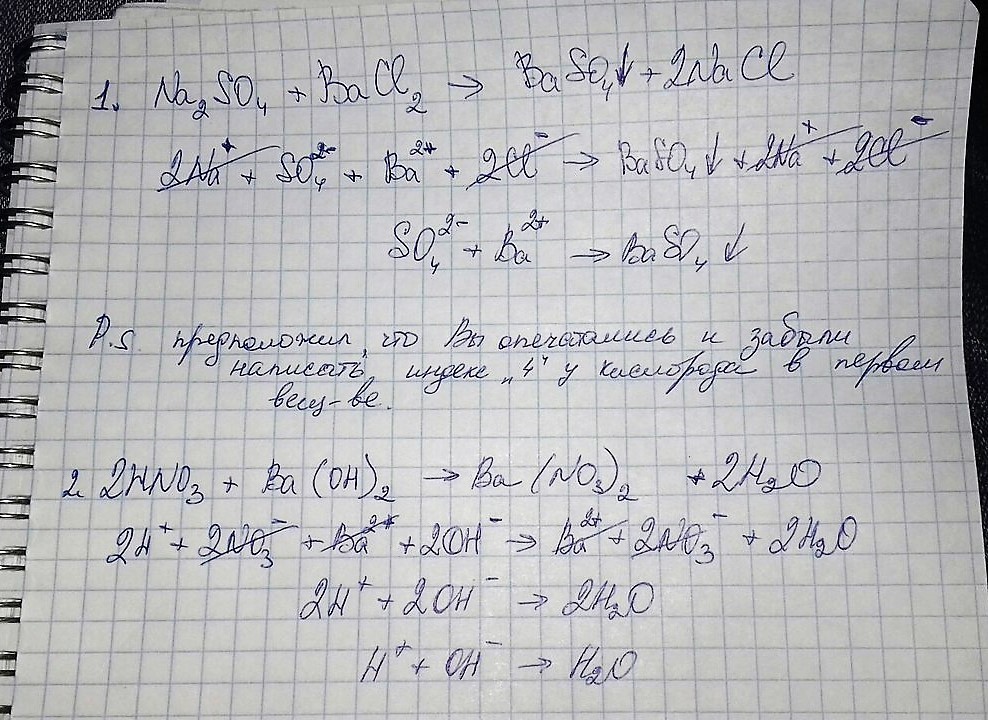 1. Na₂SO₄ + BaCl₂ → BaSO₄↓ + 2NaCl
2Na⁺ + SO₄²⁻ + Ba²⁺ + 2Cl⁻ → BaSO₄↓ + 2Na⁺ + 2Cl⁻
SO₄²⁻ + Ba²⁺ → BaSO₄↓
P.S. предположил, что Вы опечатались и забыли
написать индекс „4" у кислорода в первом
вещ-ве.
2. 2HNO₃ + Ba(OH)₂ → Ba(NO₃)₂ + 2H₂O
2H⁺ + 2NO₃⁻ + Ba²⁺ + 2OH⁻ → Ba²⁺ + 2NO₃⁻ + 2H₂O
2H⁺ + 2OH⁻ → 2H₂O
H⁺ + OH⁻ → H₂O